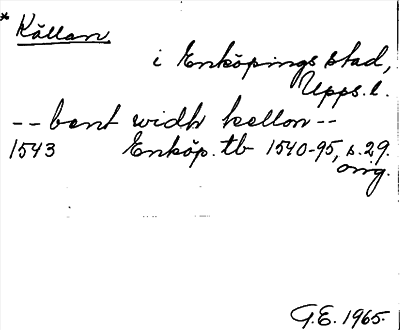 * Källan
i Enköpings stad,
Upps. l.
-- bent widh kellon --
1543 Enköp. tb 1540-95, s. 29.
orig.
G.E. 1965.